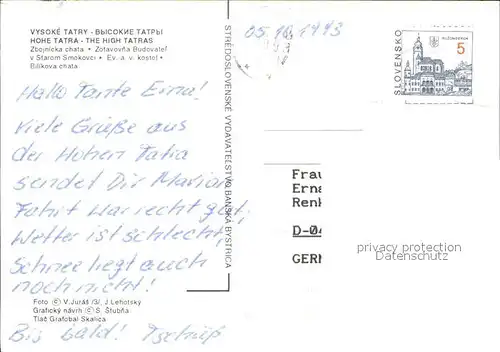 VYSOKÉ TATRY - ВЫСОКИЕ ТАТРЫ
HOHE TATRA - THE HIGH TATRAS
Zbojnícka chata • Zotavovňa Budovateľ
v Starom Smokovci • Ev. a. v. kostol •
Bilíkova chata
Hallo Tante Erna!
Viele Grüße aus
der Hohen Tatra
sendet Dir Marian
Fahrt war recht gut,
Wetter ist schlecht,
Schnee liegt auch
noch nicht!
Foto © V. Juráš /3/, J. Lehotský
Grafický návrh © S. Štubňa
Tlač Grafobal Skalica
Bis bald! Tschüß
STREDOSLOVENSKÉ VYDAVATEĽSTVO BANSKÁ BYSTRICA
05.10.1993
SLOVENSKO
RUŽOMBEROK
5
Frau
Erna
Renk
D-04
GERM
protection copyright
Datenschutz